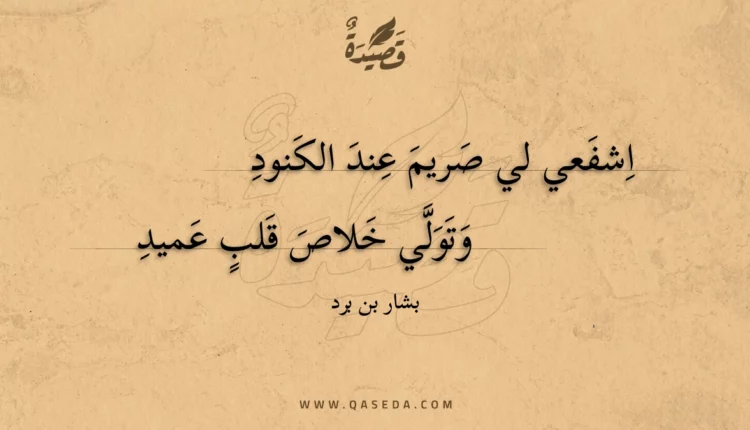 قَصِيْدَةٌ
اِشفَعي لي صَريمَ عِندَ الكَنودِ
وَتَوَلَّي خَلاصَ قَلبٍ عَميدِ
بشار بن برد
WWW.QASEDA.COM